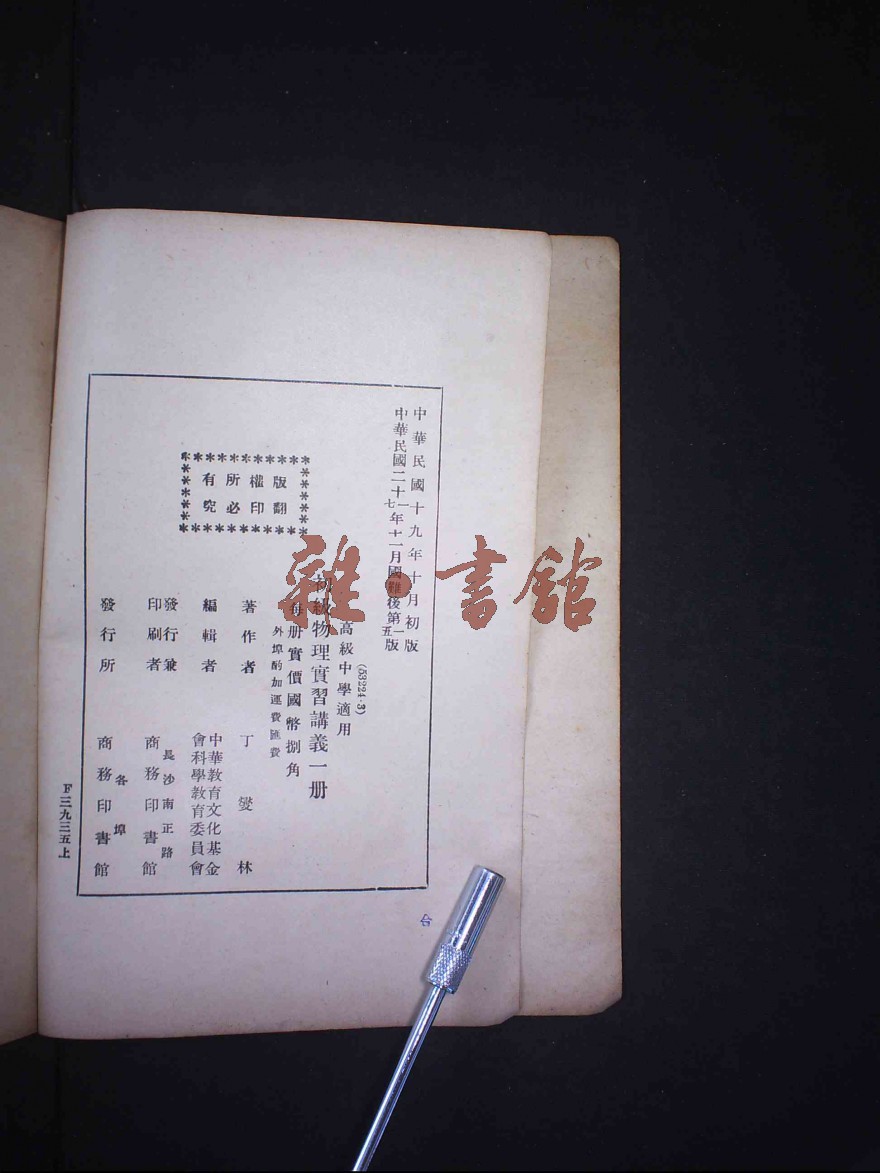 中華民國十九年十月初版
中華民國二十一七年十一月國難後第一五版
(53224·3)
高級中學適用
初級物理實習講義一册
每册實價國幣捌角
外埠酌加運費匯費
版權所有
翻印必究
著作者 丁燮林
編輯者 中華教育文化基金
會科學教育委員會
發行兼
印刷者 長沙南正路
商務印書館
發行所 各埠
商務印書館
F三九三五上
台
雜·書館